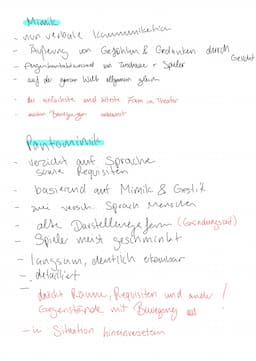 Mimik
- non verbale Kommunikation
- Äußerung von Gefühlen & Gedanken durch
Gesicht
- von Zuschauer + Spieler
- auf der ganzen Welt allgemein gleich
- die einfachste und älteste Form im Theater
- Bewegungen
Pantomimik
- verzicht auf Sprache
sowie Requisiten
- basierend auf Mimik & Gestik
- zwei versch. Sprach Menschen
- alte Darstellungsform
- Spieler meist geschminkt
- langsam, deutlich erkennbar
- detailliert
- Räume, Requisiten und andere !
Gegenstände mit Bewegung
- in Situation hineinversetzen